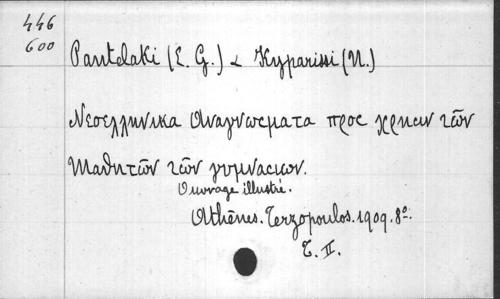 446
600
Pantelaki (E. G.) & Kyparissi (N.)
Νεοελληνικα Αναγνωσματα προς χρησιν τῶν
Μαθητῶν τῶν γυμνασιων.
Ouvrage illustré.
Athènes. Terzopoulos. 1909. 8º.
T. II.